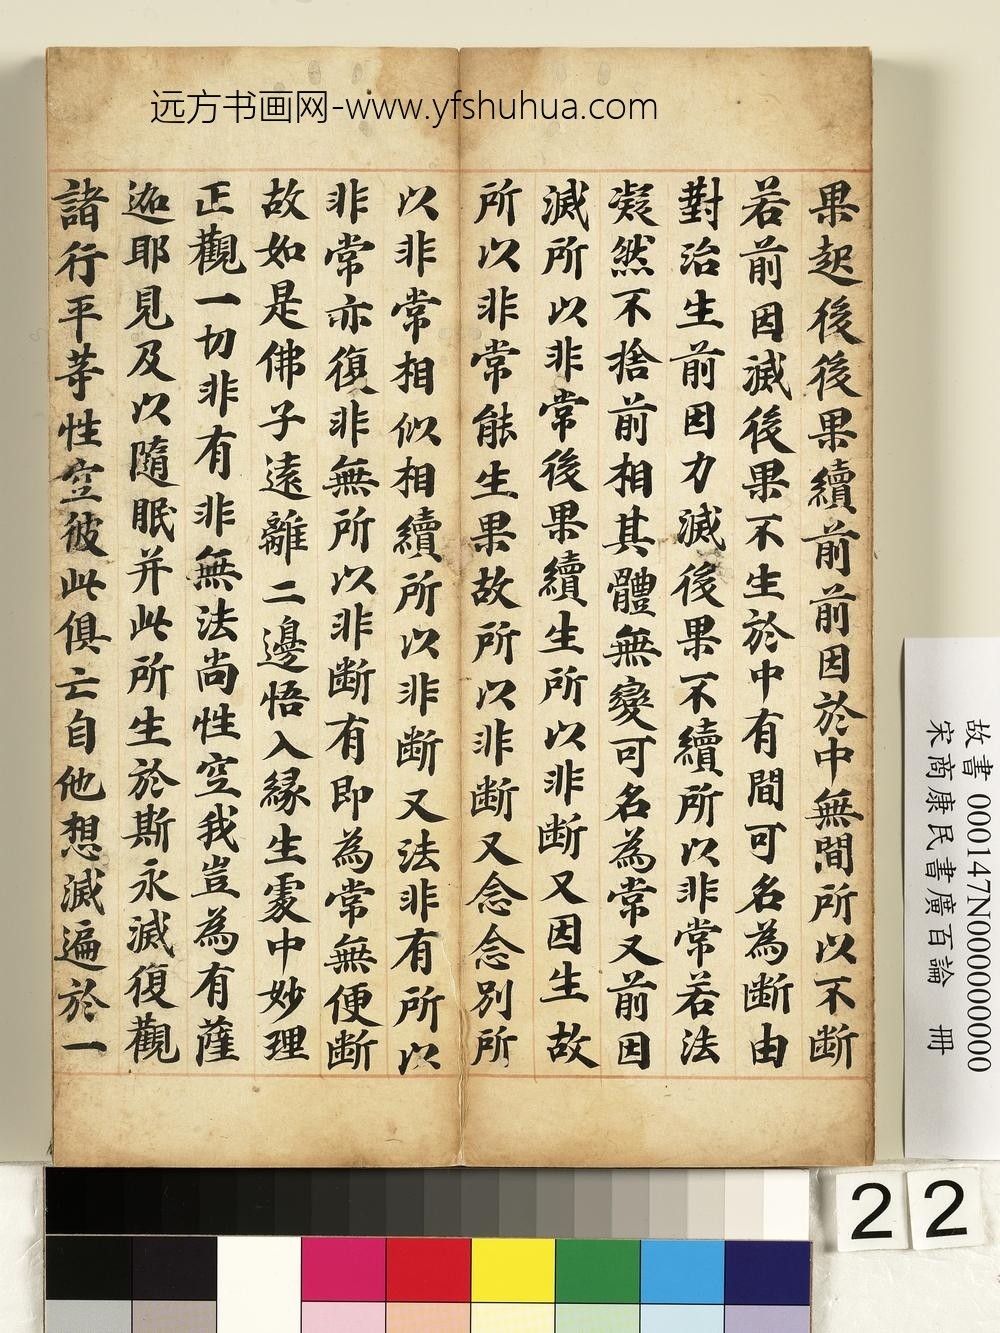 远方书画网-www.yfshuhua.com
果起後後果續前前因於中無間所以不断
若前因滅後果不生於中有間可名為断由
對治生前因力滅後果不續所以非常若法
凝然不捨前相其體無變可名為常又前因
滅所以非常後果續生所以非断又因生故
所以非常能生果故所以非断又念念別所
以非常相似相續所以非断又法非有所以
非常亦復非無所以非断有即為常無便断
故如是佛子遠離二邊悟入緣生處中妙理
正觀一切非有非無法尚性空我豈為有薩
迦耶見及以隨眠并此所生於斯永滅復觀
諸行平等性空彼此俱亡自他想滅遍於一
故書 000147N000000000
宋商康民書廣百論 冊
22